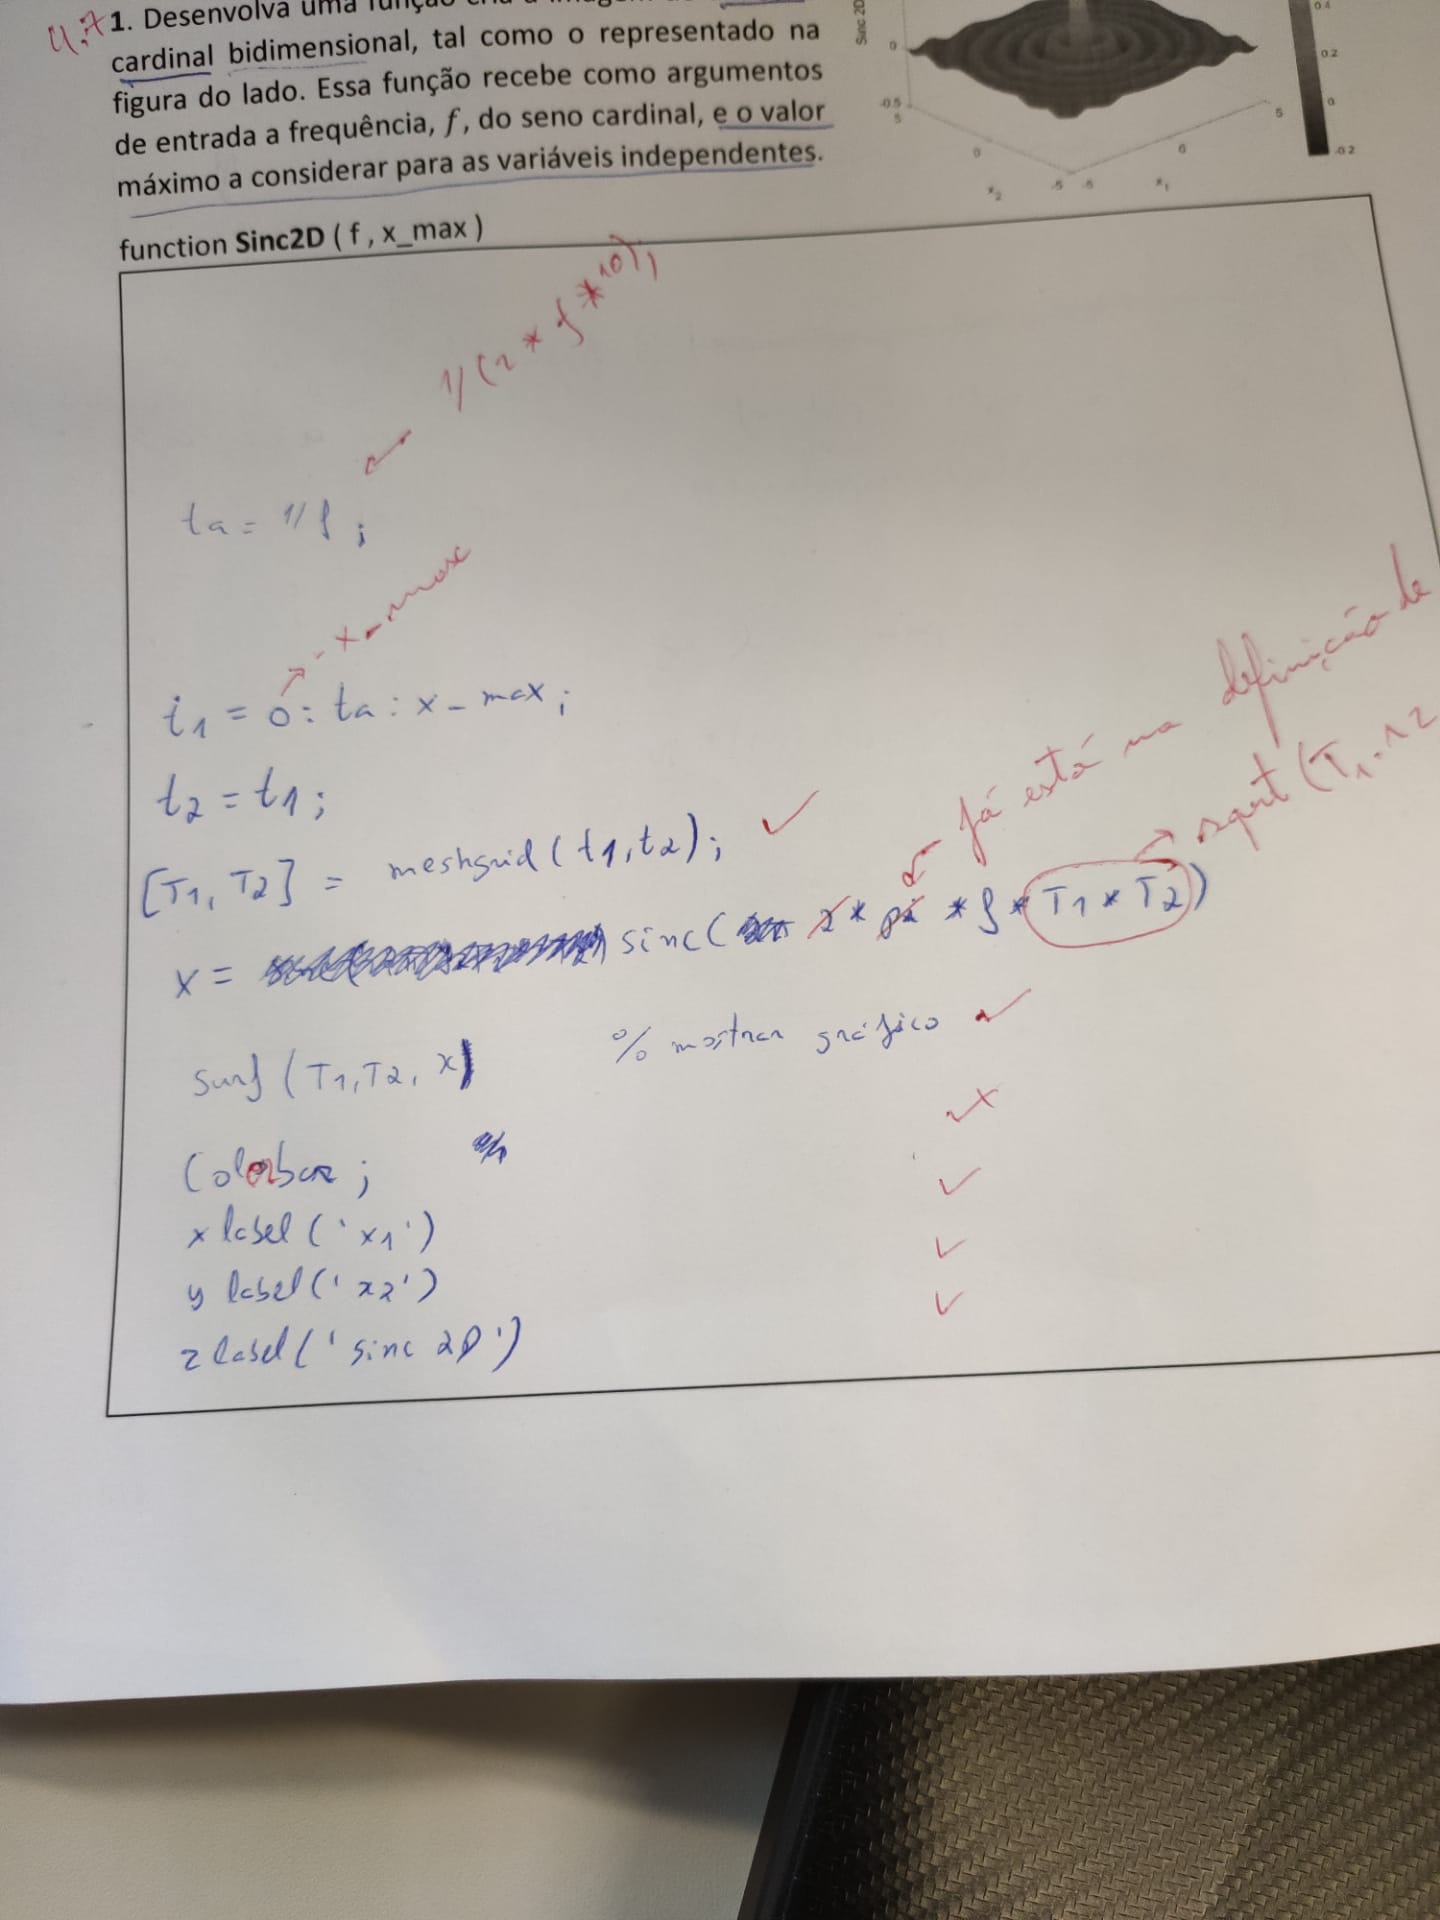 4.7 1. Desenvolva uma função
cardinal bidimensional, tal como o representado na
figura do lado. Essa função recebe como argumentos
de entrada a frequência, f, do seno cardinal, e o valor
máximo a considerar para as variáveis independentes.
Sinc 2D
0
-0.5
5
0
-5
-5
0
5
x2
x1
0.4
0.2
0
-0.2
function Sinc2D ( f , x_max )
1/(2 * f * 10);
ta = 1/f ;
-x_max
t1 = 0: ta : x_max ;
t2 = t1;
[T1, T2] = meshgrid(t1,t2);
já está na definição de
sqrt(T1.^2
x = sinc( 2 * pi * f * T1 * T2)
surf (T1,T2, x) % mostrar gráfico
Colorbar ;
xlabel ('x1')
ylabel ('x2')
zlabel ('sinc 2D')